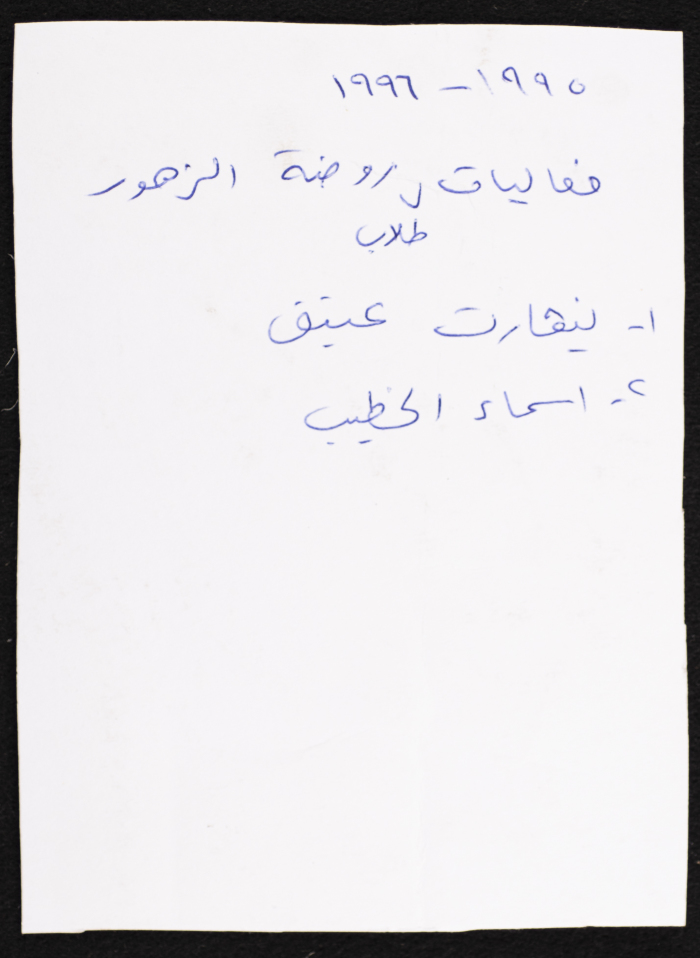 ١٩٩٥ - ١٩٩٦
فعاليات روضة الزهور
طلاب
١- عتيق
٢- اسماء الخطيب